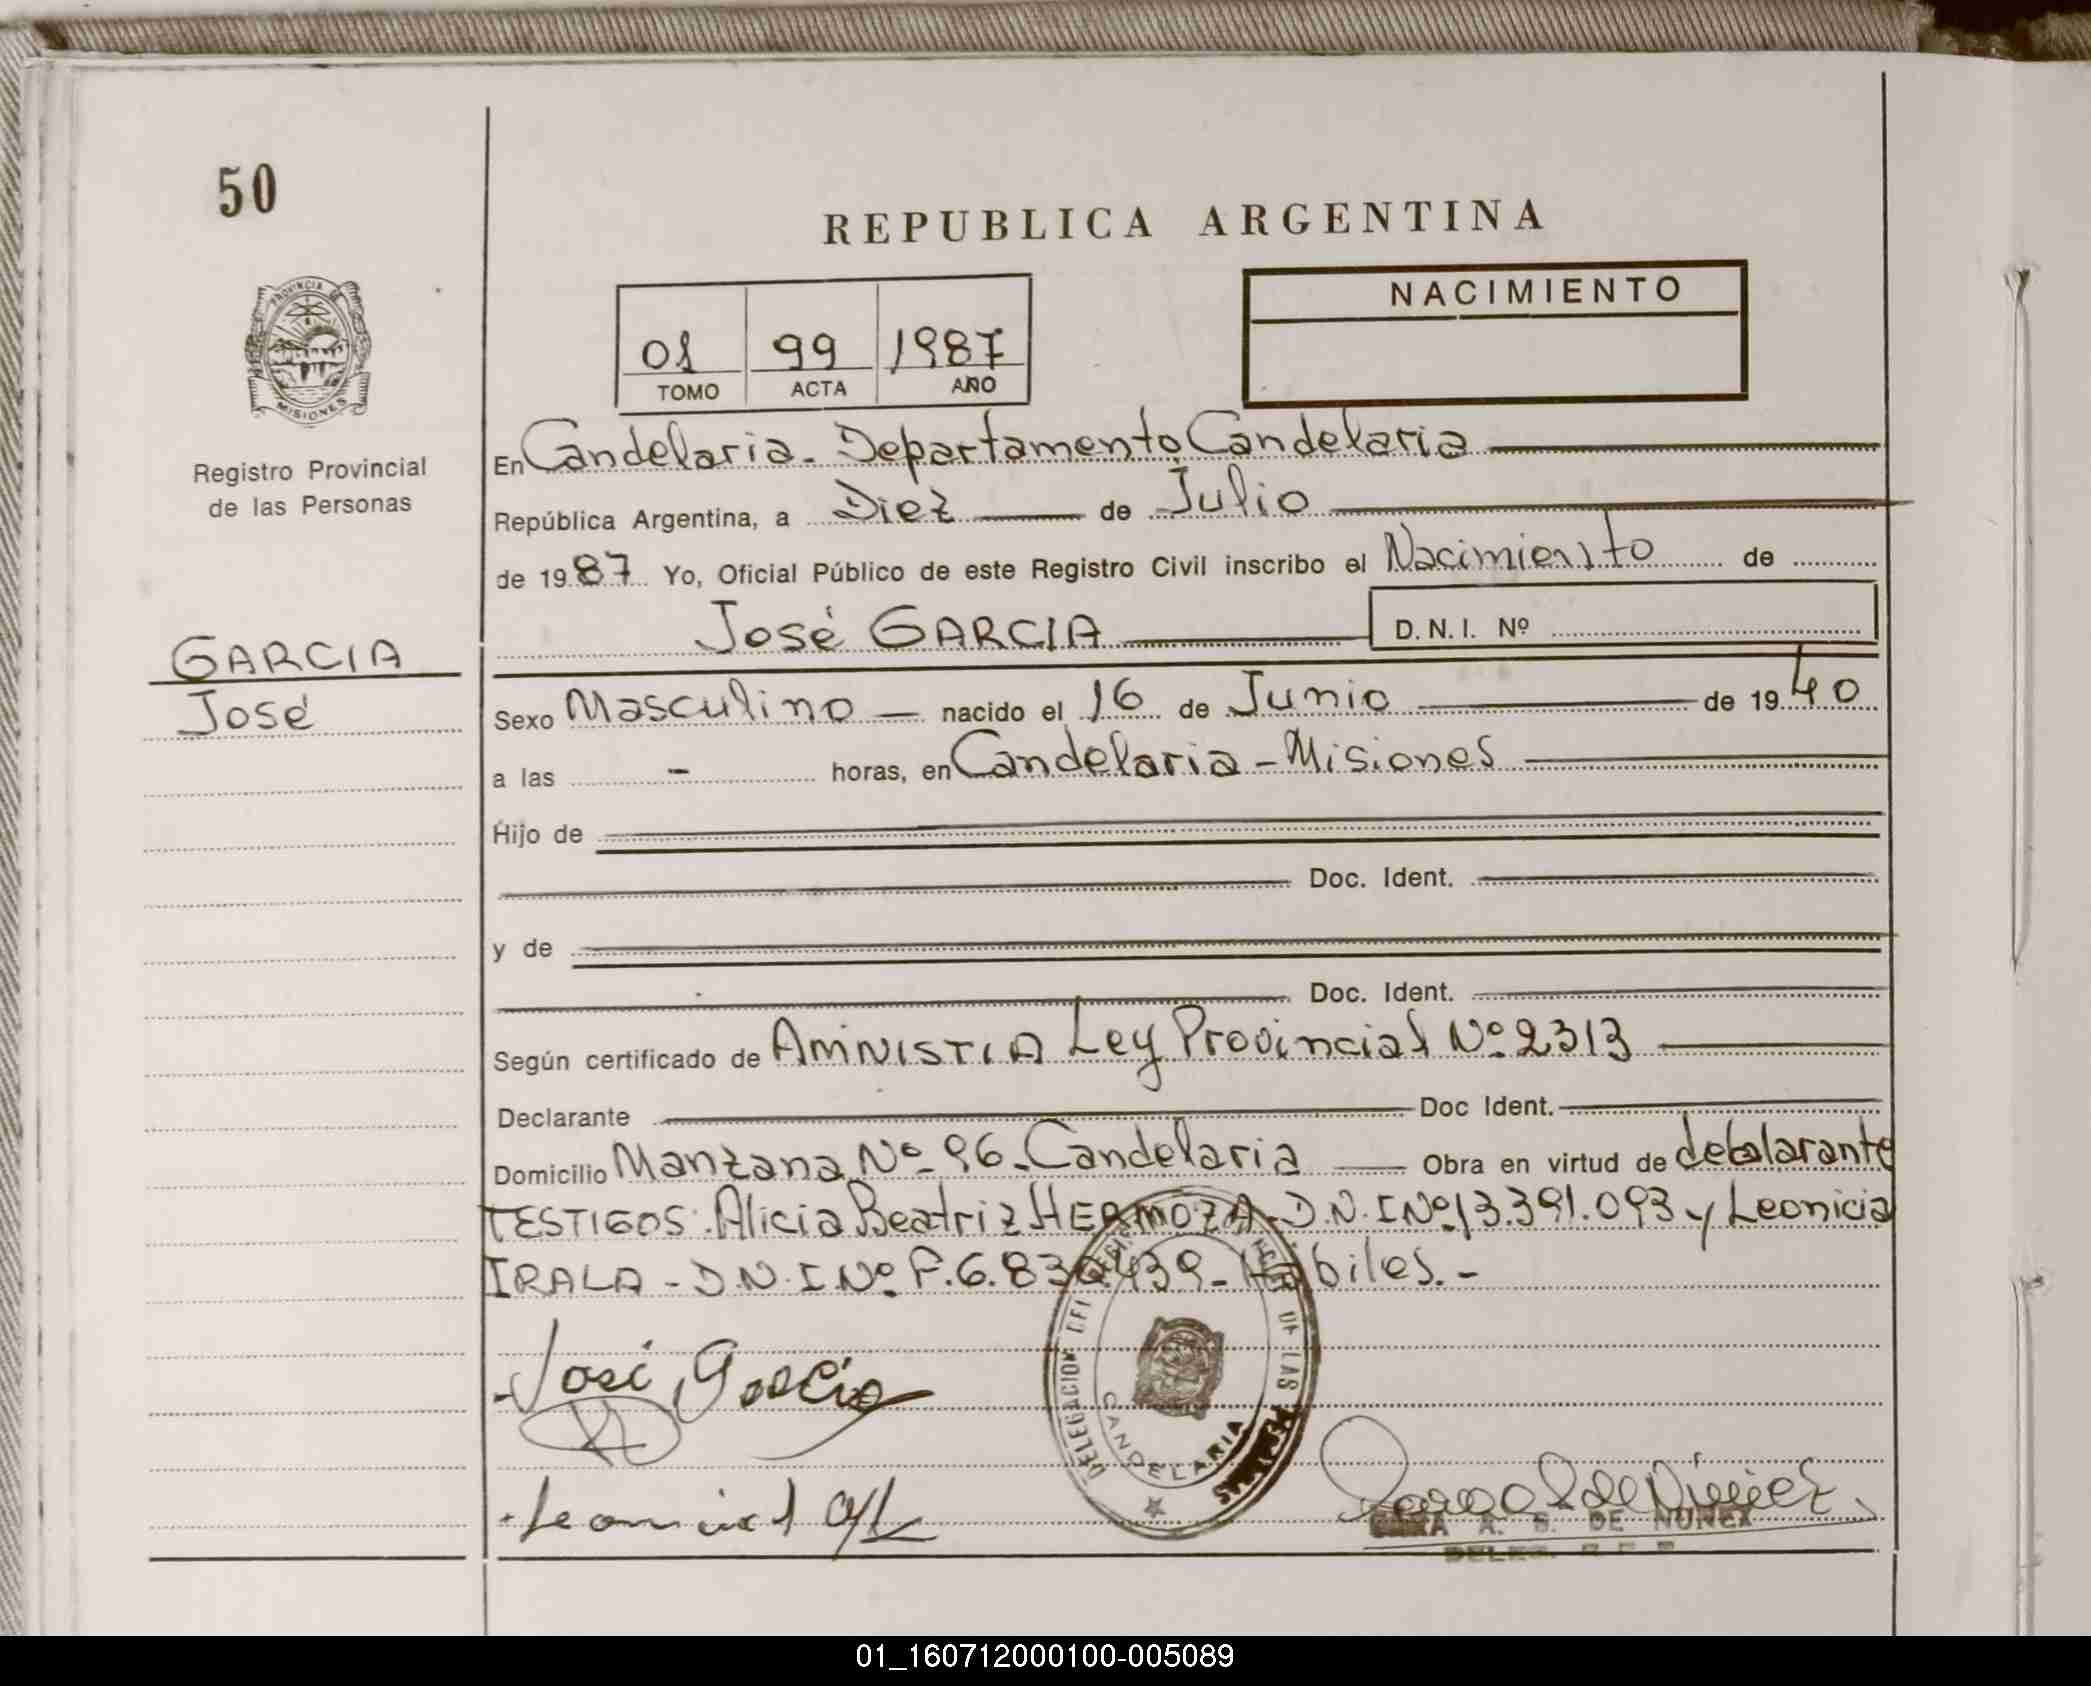 50
REPUBLICA ARGENTINA
PROVINCIA DE
MISIONES
NACIMIENTO
01 99 1987
TOMO ACTA AÑO
Registro Provincial
de las Personas
En Candelaria. Departamento Candelaria
República Argentina, a Diez de Julio
de 1987 Yo, Oficial Público de este Registro Civil inscribo el Nacimiento de
José GARCIA D.N.I. Nº
GARCIA
José
Sexo Masculino - nacido el 16 de Junio de 1940
a las - horas, en Candelaria - Misiones
Hijo de
Doc. Ident.
y de
Doc. Ident.
Según certificado de AMNISTIA Ley Provincial Nº 2313
Declarante Doc Ident.
Domicilio Manzana Nº 96. Candelaria Obra en virtud de
TESTIGOS: Alicia Beatriz HERMOZA - D.N.I Nº 13.391.093 y Leonicia
IRALA - D.N.I. Nº F.6.830.439 - Hábiles. -
José Garcia
DELEGACION DEL REGISTRO DE LAS PERSONAS
CANDELARIA
A. S. DE NUÑEZ
01_160712000100-005089